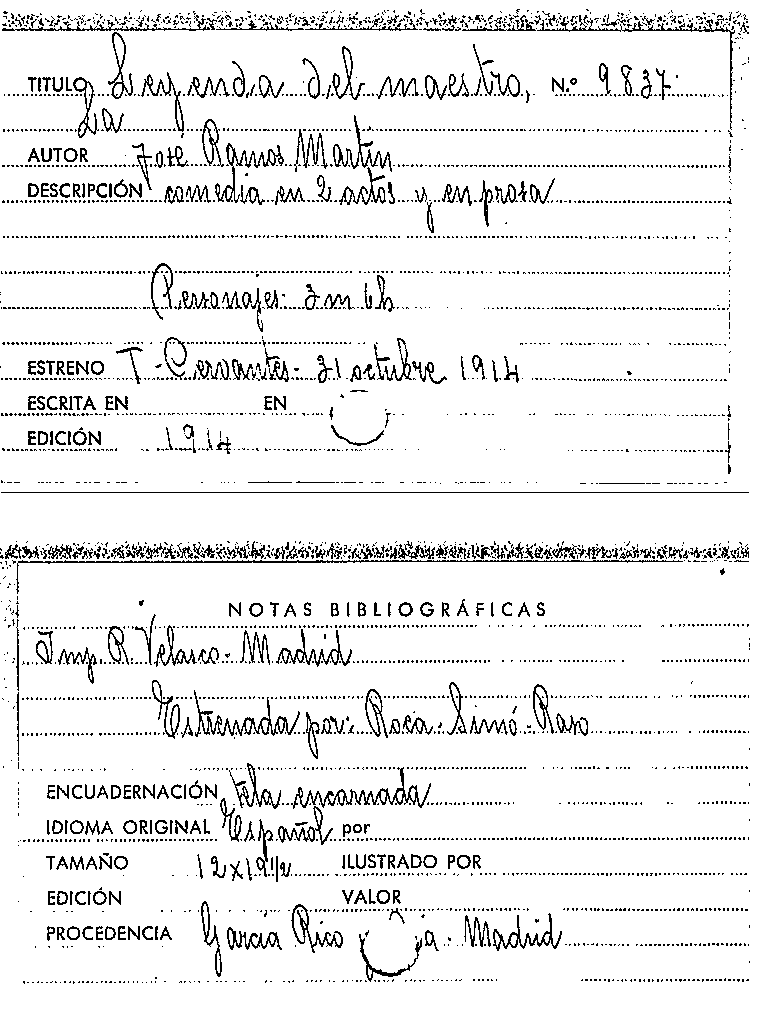 TITULO Leyenda del maestro, N.º 9837
La
AUTOR José Ramos Martín
DESCRIPCIÓN comedia en 2 actos y en prosa
Personajes- 3m 6h
ESTRENO T-Cervantes- 31 octubre 1914
ESCRITA EN EN
EDICIÓN 1914
NOTAS BIBLIOGRÁFICAS
Imp. R Velasco- Madrid
Estrenada por: Roca-Simó-Raso
ENCUADERNACIÓN tela encarnada
IDIOMA ORIGINAL Español por
TAMAÑO 12x19 1/2 ILUSTRADO POR
EDICIÓN VALOR
PROCEDENCIA García Rico Madrid